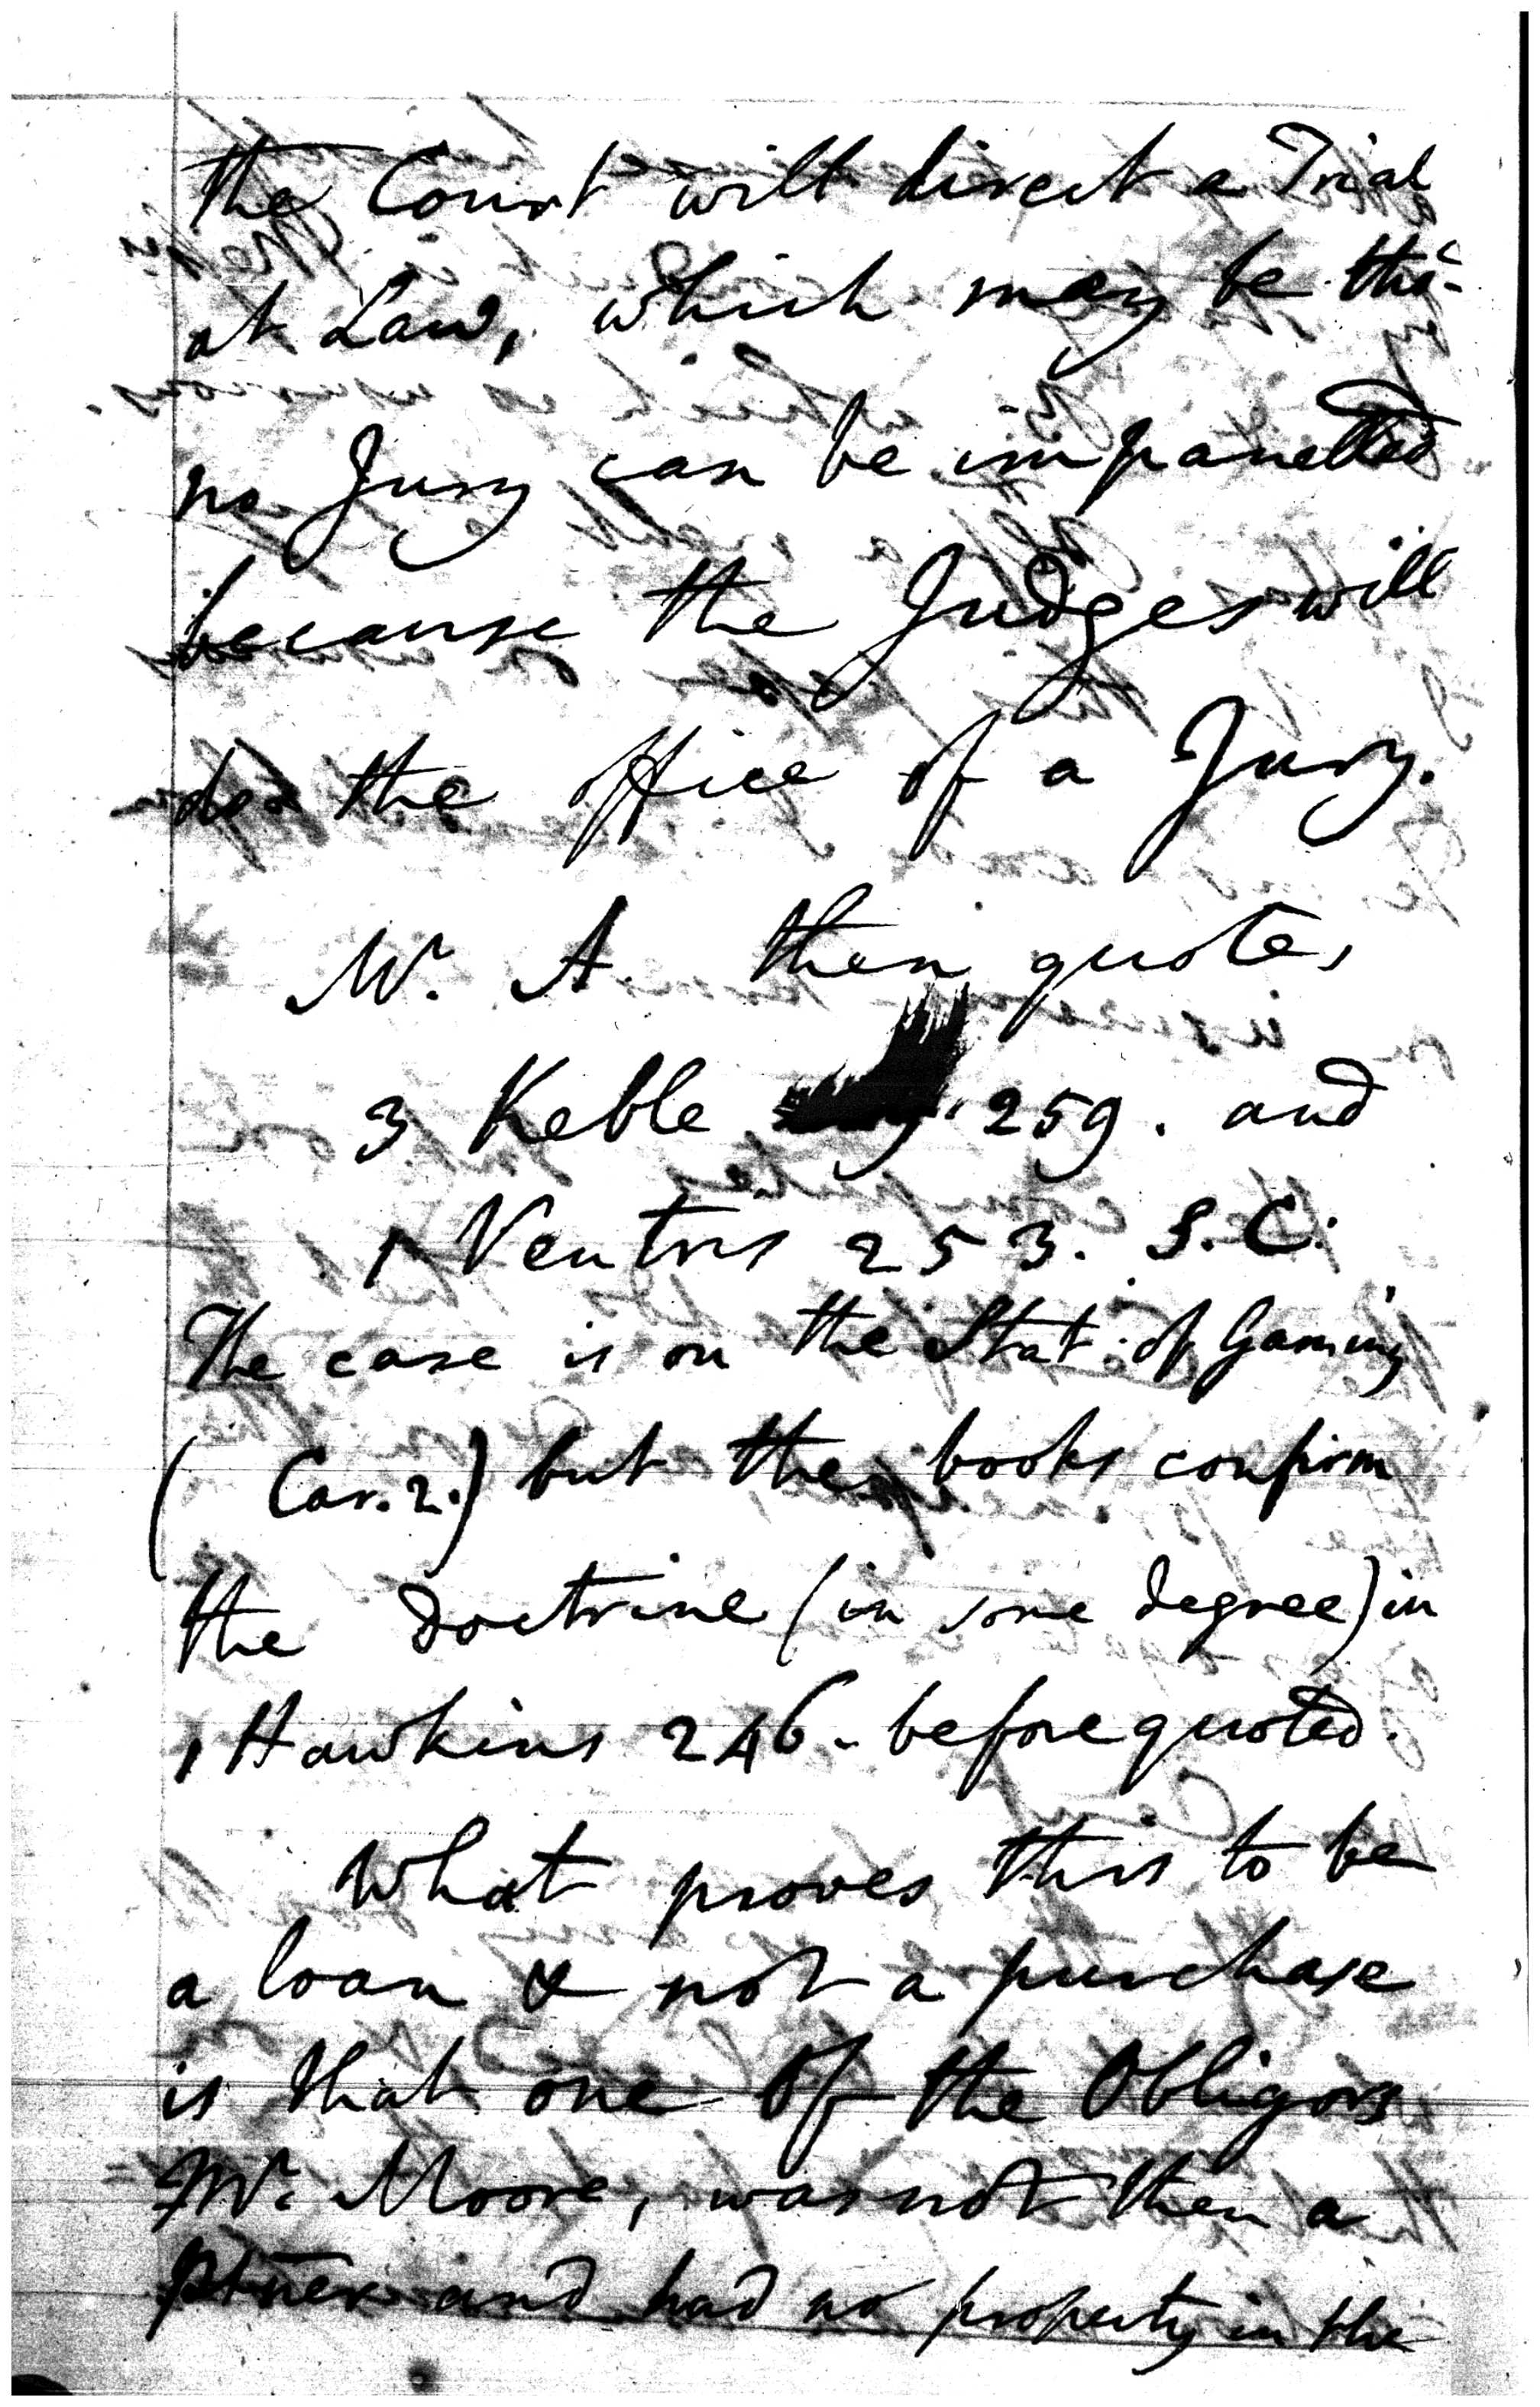 the Court will direct a Trial
at Law, which may be tho'
no Jury can be impanelled
because the Judges will
do the office of a Jury.
Mr. A. then quotes
3 Keble 259. and
1 Ventris 253. S.C.
The case is on the Stat. of Gaming
(Car. 2.) but the books confirm
the Doctrine (in some degree) in
1 Hawkins 246. before quoted.
What proves this to be
a loan & not a purchase
is that one of the Obligors
Mr. Moore, was not then a
Ptner and had no property in the